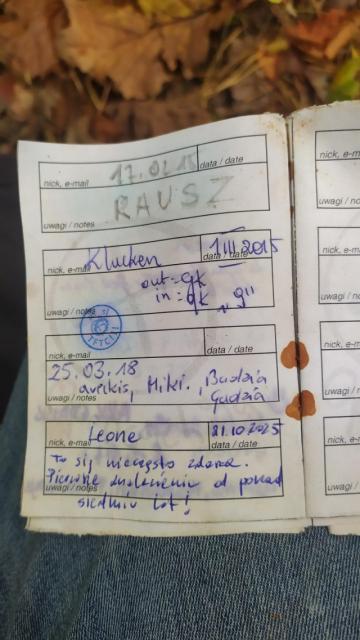 17.02.15
nick, e-mail
data / date
RAUSZ
uwagi / notes
Klucken
1 III 2015
nick, e-mail
data / date
out = qk
in = qk "g"
uwagi / notes
TFTC
nick, e-mail
data / date
25.03.18
avelkis, Miki, Budzia
Gudzia
uwagi / notes
Leone
31.10.2025
nick, e-mail
data / date
To się nieczęsto zdarza.
Pierwsze znalezienie od ponad
uwagi / notes
siedmiu lat!
nick, e-m
uwagi /
nick, e-m
uwagi /
nick, e-m
uwagi / n
nick, e-m
uwagi / n